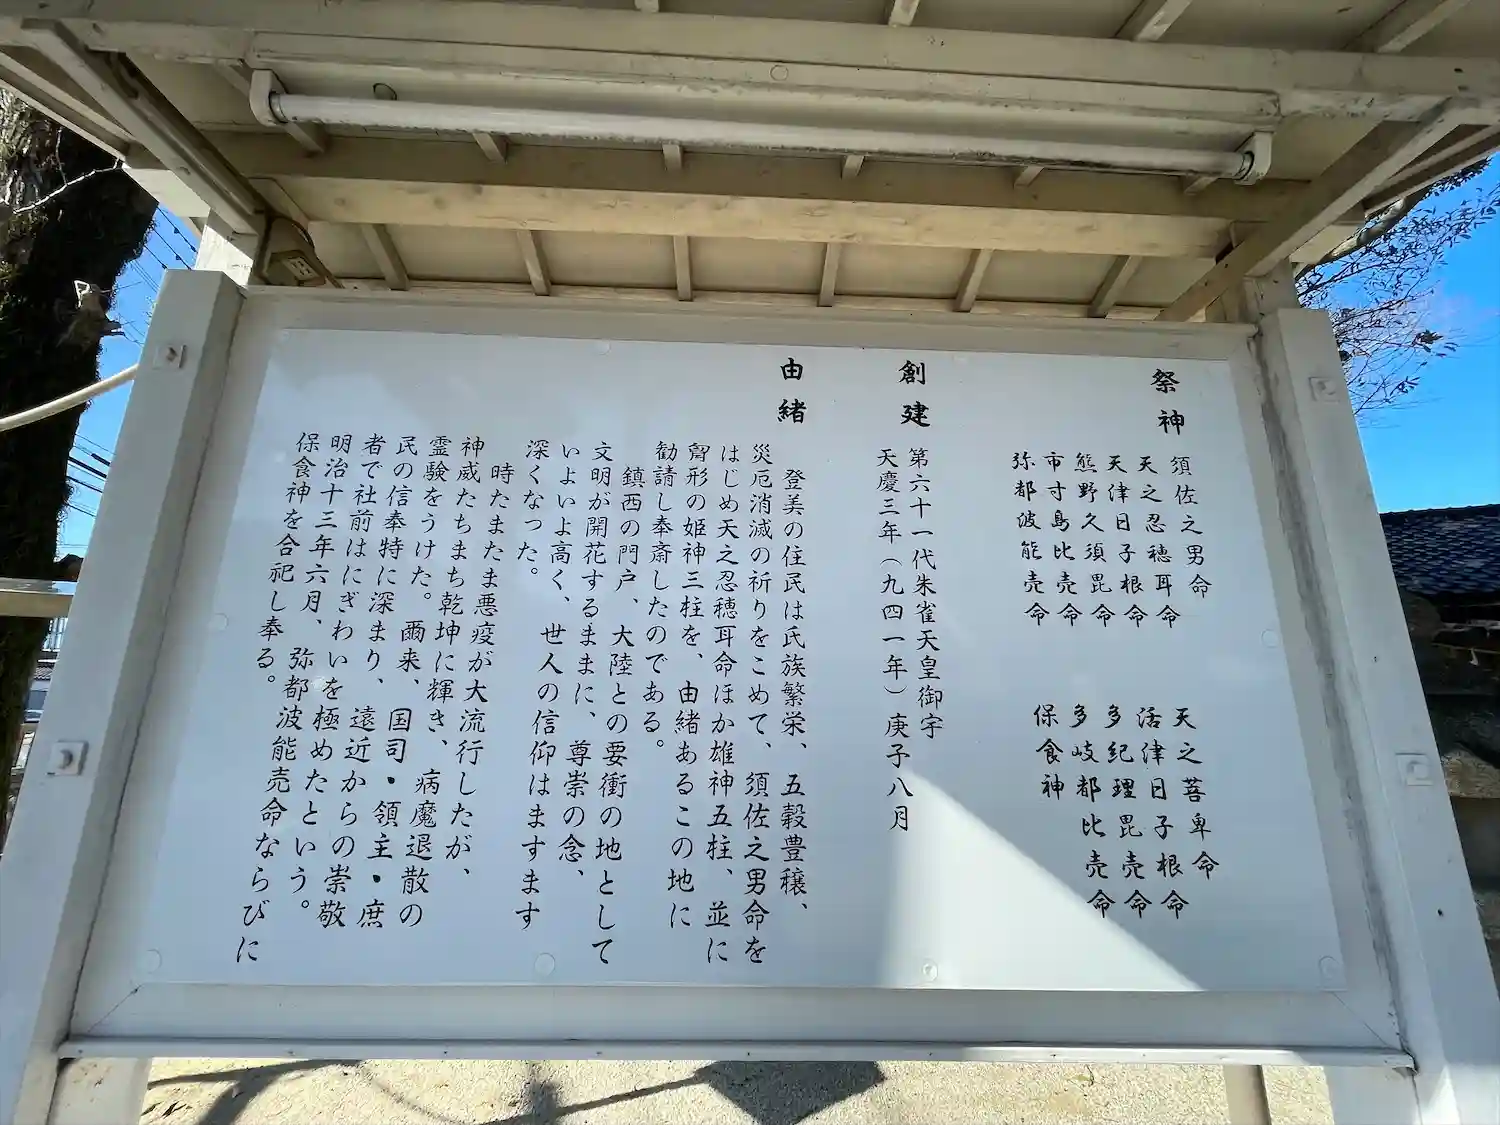 祭神
須佐之男命
天之忍穂耳命
天津日子根命
熊野久須毘命
市寸島比売命
弥都波能売命
天之菩卑命
活津日子根命
多紀理毘売命
多岐都比売命
保食神
創建
第六十一代朱雀天皇御宇
天慶三年（九四一年）庚子八月
由緒
登美の住民は氏族繁栄、五穀豊穣、
災厄消滅の祈りをこめて、須佐之男命を
はじめ天之忍穂耳命ほか雄神五柱、並に
胷形の姫神三柱を、由緒あるこの地に
勧請し奉斎したのである。
鎮西の門戸、大陸との要衝の地として
文明が開花するままに、尊崇の念、
いよいよ高く、世人の信仰はますます
深くなった。
時たまたま悪疫が大流行したが、
神威たちまち乾坤に輝き、病魔退散の
霊験をうけた。爾来、国司・領主・庶
民の信奉特に深まり、遠近からの崇敬
者で社前はにぎわいを極めたという。
明治十三年六月、弥都波能売命ならびに
保食神を合祀し奉る。